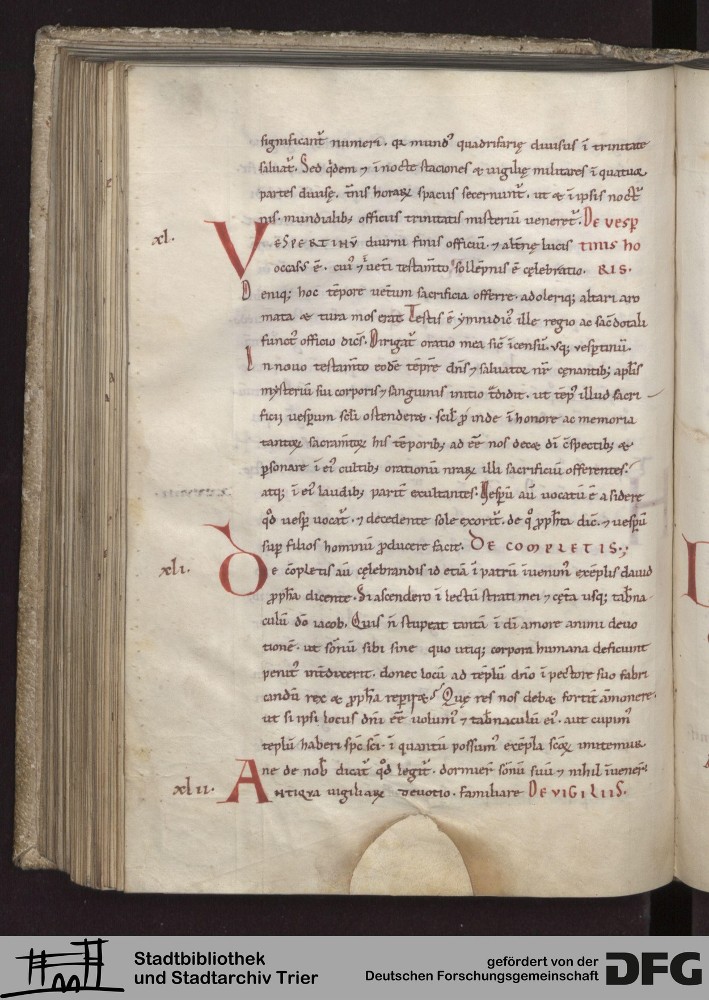 significant numeri. qa mund⁹ quadrifarię diuisus ī trinitate
saluat̄. Sed q̇dem ⁊ ī nocte staciones & uigilię militares ī quatuor
partes diuisę. t̄nis horaꝝ spaciis secernunt̄. ut & ī ipsis noct̄
nis mundialib; officiis trinitatis misteriū ueneret̄. De vesp
xl. VESPERTINŪ diurni finis officiū. ⁊ alt̄nę lucis tinis ho
occasꝰ ē. cuiꝰ ⁊ ueti testam̄to sollēpnis ē cęlebratio. RIS.
Deniq; hoc tēpore uetum sacrificia offerre. adoleriq; altari aro
mata & tura mos erat. Testis ē ymnidicꝰ ille regio ac sac̄dotali
funct⁹ officio dicēs. Dirigat̄ oratio mea sic̄ īcensū. usq; vesptinū.
In nouo testam̄to eodē tēpre dn̄s ⁊ saluator nr̄ cęnantib; apl̄is
mysteriū sui corporis ⁊ sanguinis initio t̄didit. ut tēp⁹ illud sacri
ficii uesperum sc̄li ostenderet.
tantoꝝ sacram̄toꝝ his tēporib; ad eē nos decet di c̄spectib; &
psonare ī ei⁹ cultib; orationū nr̄aꝝ illi sacrificiū offerentes.
atq; ī ei⁹ laudib; parit̄ exultantes. Vesperū aū uocatū ē a sidere
qd̄ uesp uocat̄. ⁊ decedente sole exorit̄. de q̊ ꝓph̄a dic̄. ⁊ uesperū
sup filios hominū ꝓducere facit. DE COMPLETIS.
xli. De c̄pletis aū cęlebrandis id etiā ī patrū īuenim⁹ exēplis dauid
ꝓph̄a dicente. Si ascendero ī lectū strati mei ⁊ cęt̄a usq; tab̄na
culū dō iacob. Quis n̄ stupeat tantā ī di amore animi deuo
tionē. ut sōnū sibi sine quo utiq; corpora humana deficiunt
penit⁹ int̄dixerit. donec locū ad tēplū dn̄o ī pectore suo fabri
candū rex & ꝓph̄a repiret. Quę res nos debet fortit̄ āmonere.
ut si ipsi locus dn̄i eē uolum⁹ ⁊ tab̄naculū ei⁹. aut cupim⁹
tēplū haberi sp̄c sc̄i. ī quantū possum⁹ exēpla sc̄oꝝ imitemur.
ne de nob̄ dicat̄ qd̄ legit̄. dormier̄ sōnū suū ⁊ nihil īuener̄
xlii. ANTIQVA uigiliaꝝ deuotio. familiare DE VIGILIIS.
Stadtbibliothek
und Stadtarchiv Trier
gefördert von der
Deutschen Forschungsgemeinschaft
DFG